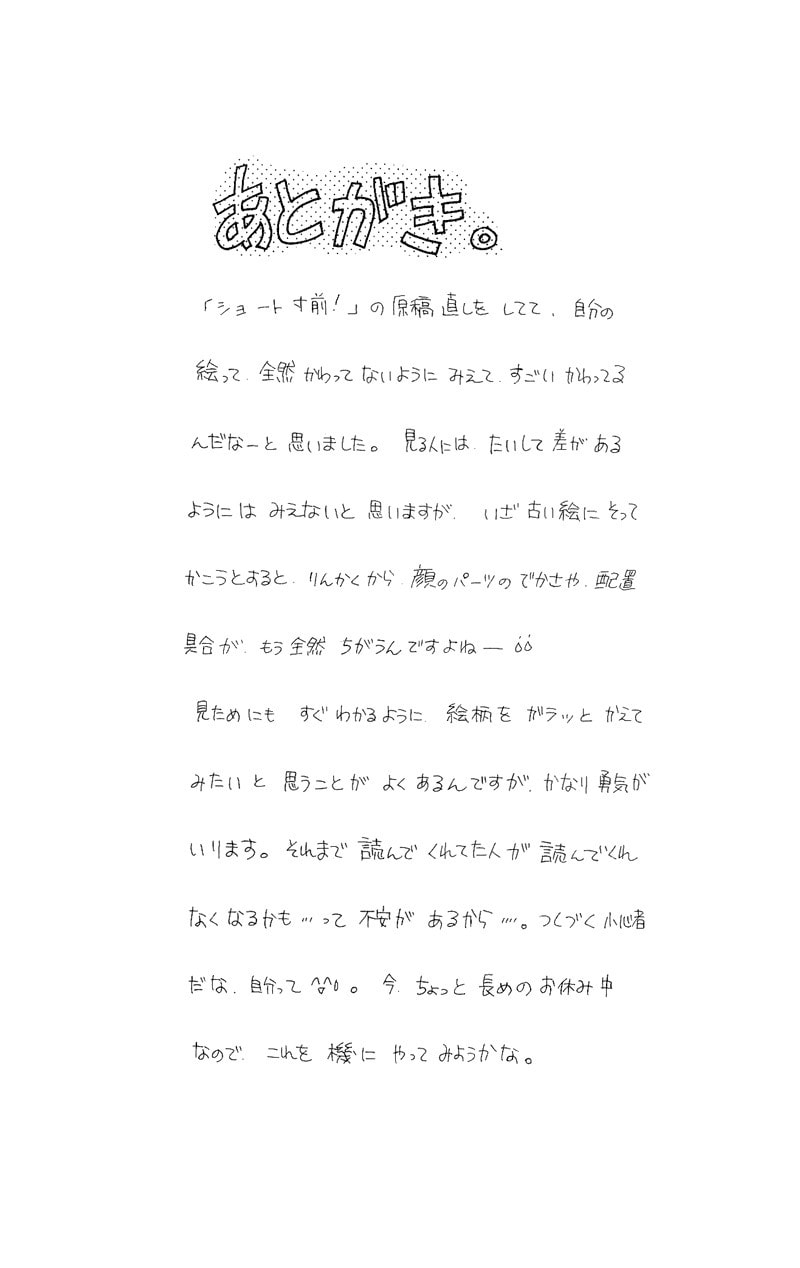 あとがき。
「ショート寸前!」の原稿直しをしてて、自分の
絵って、全然かわってないようにみえて、すごいかわってる
んだなーと思いました。見る人には、たいして差がある
ようにはみえないと思いますが、いざ古い絵にそって
かこうとすると、りんかくから、顔のパーツのでかさや、配置
具合が、もう全然ちがうんですよねー
見ためにもすぐわかるように、絵柄をガラッとかえて
みたいと思うことがよくあるんですが、かなり勇気が
いります。それまで読んでくれてた人が読んでくれ
なくなるかも…って不安があるから…。つくづく小心者
だな、自分って^^;。今、ちょっと長めのお休み中
なので、これを機にやってみようかな。